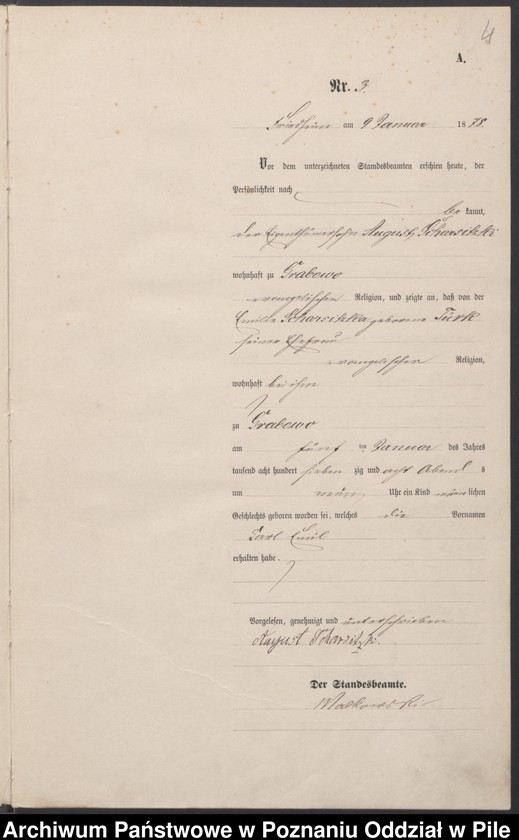 4
A.
Nr. 3.
Friedheim am 9 Januar 1878.
Vor dem unterzeichneten Standesbeamten erschien heute, der
Persönlichkeit nach
be kannt,
der Eigenthümersohn August
wohnhaft zu Grabowo
evangelischer Religion, und zeigte an, daß von der
Emilie geborene Türk
seiner Ehefrau
evangelischer Religion,
wohnhaft bei ihm
zu Grabowo
am fünf ten Januar des Jahres
tausend acht hundert sieben zig und acht Abend s
um neun Uhr ein Kind männlichen
Geschlechts geboren worden sei, welches die Vornamen
Carl Emil
erhalten habe.
Vorgelesen, genehmigt und unterschrieben
August
Der Standesbeamte.
Malkowski
Archiwum Państwowe w Poznaniu Oddział w Pile